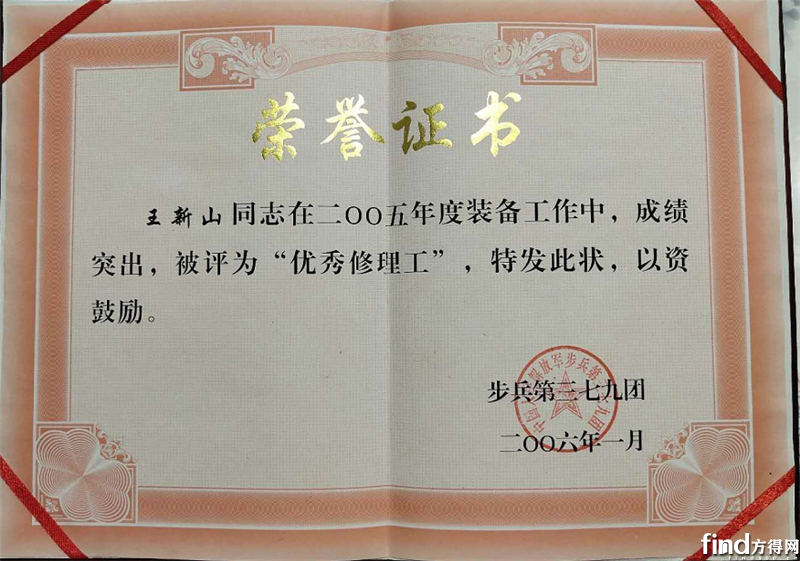 荣誉证书
王新山同志在二〇〇五年度装备工作中，成绩
突出，被评为“优秀修理工”，特发此状，以资
鼓励。
步兵第三七九团
二〇〇六年一月
find方得网